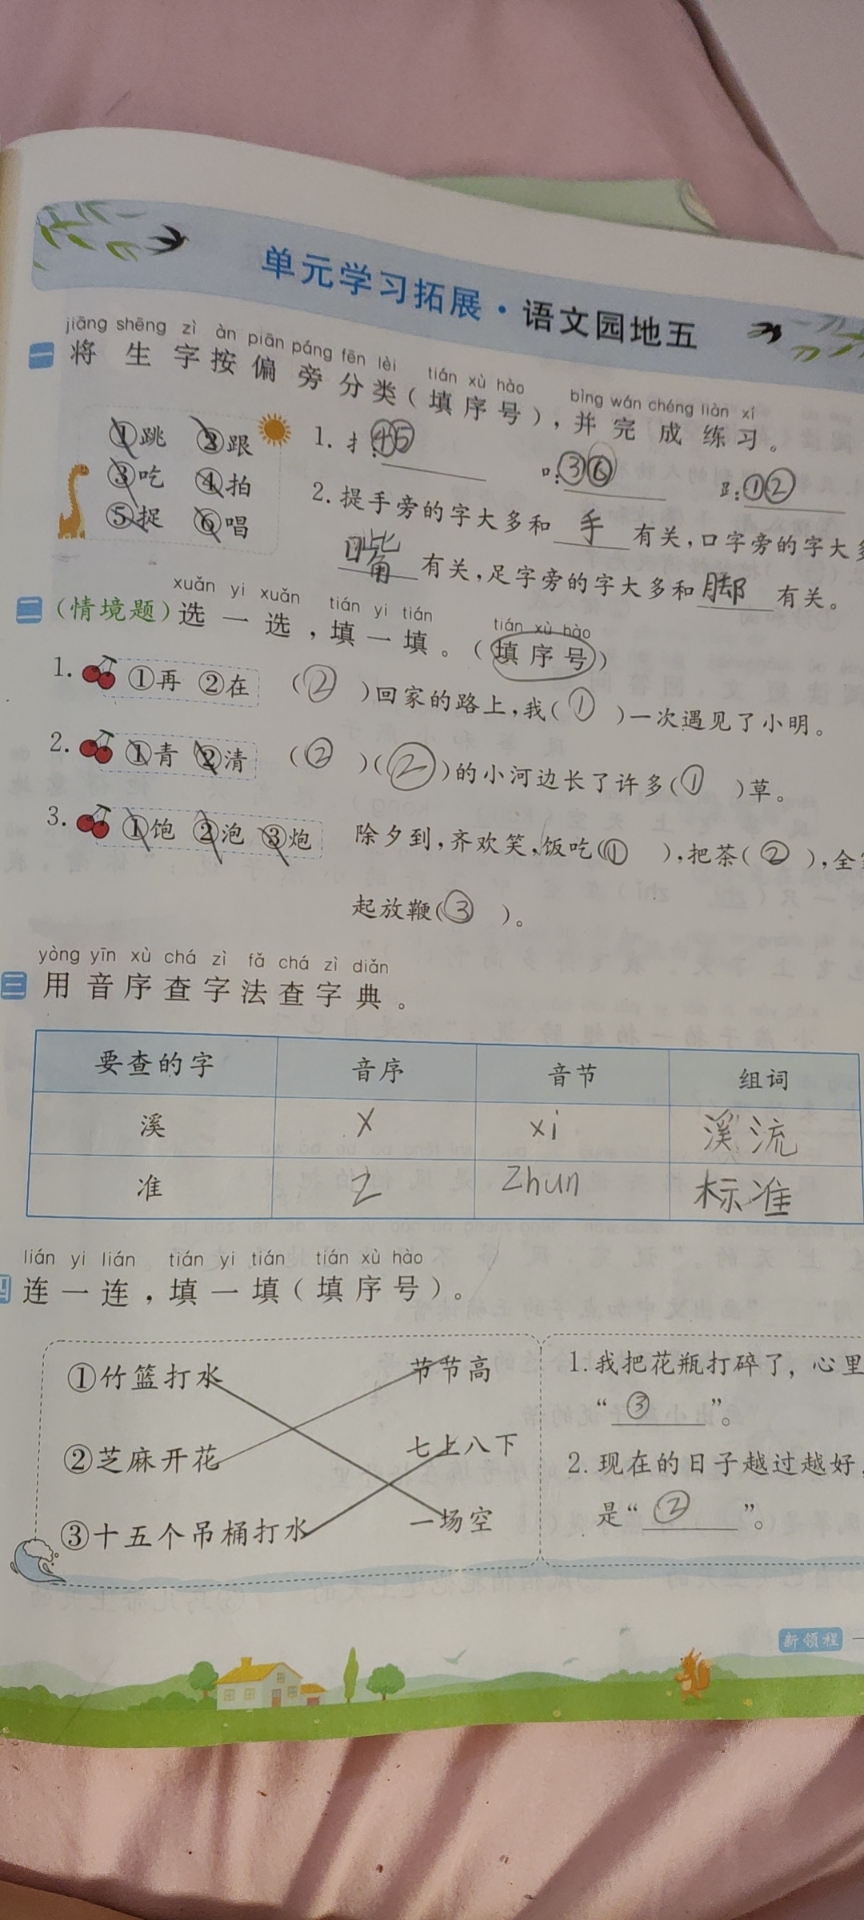 单元学习拓展·语文园地五
jiāng shēng zì àn piān páng fēn lèi tián xù hào bìng wán chéng liàn xí
一 将生字按偏旁分类(填序号),并完成练习。
①跳 ②跟
③吃 ④拍
⑤捉 ⑥唱
1. 扌:④⑤ 口:③⑥ ⻊:①②
2. 提手旁的字大多和手有关,口字旁的字大多
嘴有关,足字旁的字大多和脚有关。
xuǎn yi xuǎn tián yi tián tián xù hào
二 (情境题)选一选,填一填。(填序号)
1. ①再 ②在 (②)回家的路上,我(①)一次遇见了小明。
2. ①青 ②清 (②)(②)的小河边长了许多(①)草。
3. ①饱 ②泡 ③炮 除夕到,齐欢笑,饭吃(①),把茶(②),全
起放鞭(③)。
yòng yīn xù chá zì fǎ chá zì diǎn
三 用音序查字法查字典。
要查的字 音序 音节 组词
溪 X xi 溪流
准 Z Zhun 标准
lián yi lián tián yi tián tián xù hào
四 连一连,填一填(填序号)。
①竹篮打水 节节高
②芝麻开花 七上八下
③十五个吊桶打水 一场空
1. 我把花瓶打碎了,心里
“③”。
2. 现在的日子越过越好,
是“②”。
新领程